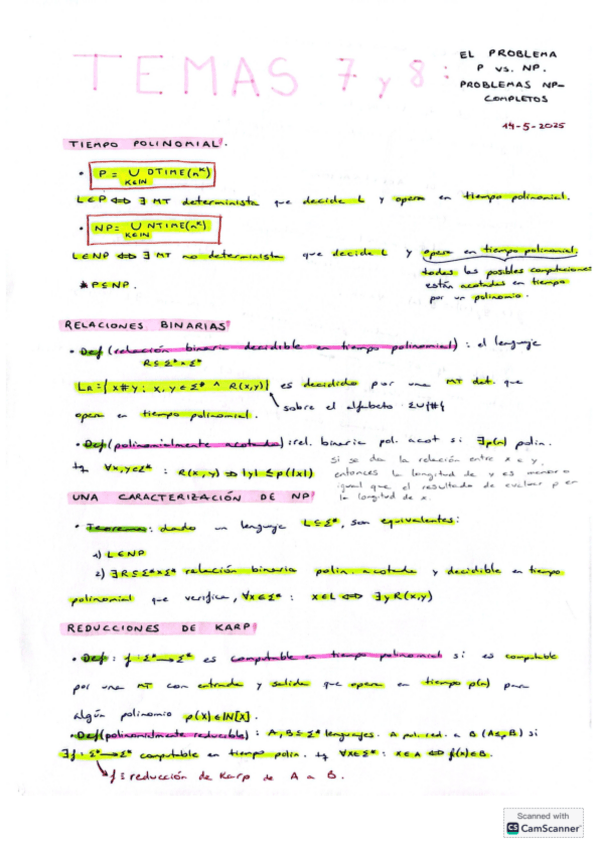 TEMAS 7 y 8:
EL PROBLEMA
P VS. NP.
PROBLEMAS NP-
COMPLETOS
14-5-2025
TIEMPO POLINOMIAL.
• P = ∪ DTIME(nᵏ)
K∈ℕ
L∈P ⟺ ∃ MT determinista que decide L y opera en tiempo polinomial.
• NP = ∪ NTIME(nᵏ)
K∈ℕ
L∈NP ⟺ ∃ MT no determinista que decide L y opera en tiempo polinomial.
todas las posibles computaciones
están acotadas en tiempo
por un polinomio.
* P⊆NP.
RELACIONES BINARIAS
• Def (relación binaria decidible en tiempo polinomial): el lenguaje
R⊆Σ*×Σ*
L_R={x#y: x,y∈Σ* ∧ R(x,y)} es decidido por una MT det. que
sobre el alfabeto Σ∪{#}
opera en tiempo polinomial.
• Def (polinomialmente acotado): rel. binaria pol. acot si ∃p(n) polin.
tq ∀x,y∈Σ*: R(x,y) ⇒ |y| ≤ p(|x|)
Si se da la relación entre x e y,
entonces la longitud de y es menor o
igual que el resultado de evaluar p en
la longitud de x.
UNA CARACTERIZACIÓN DE NP
• Teorema: dado un lenguaje L⊆Σ*, son equivalentes:
1) L∈NP
2) ∃R⊆Σ*×Σ* relación binaria polin. acotada y decidible en tiempo
polinomial que verifica, ∀x∈Σ*: x∈L ⟺ ∃y R(x,y)
REDUCCIONES DE KARP
• Def: f:Σ*→Σ* es computable en tiempo polinomial si es computable
por una MT con entrada y salida que opera en tiempo p(n) para
algún polinomio p(x)∈ℕ[x].
• Def (polinomialmente reducible): A,B⊆Σ* lenguajes. A pol. red. a B (A≤ₚB) si
∃f:Σ*→Σ* computable en tiempo polin. tq ∀x∈Σ*: x∈A ⟺ f(x)∈B.
f ≡ reducción de Karp de A a B.
Scanned with
CS CamScanner